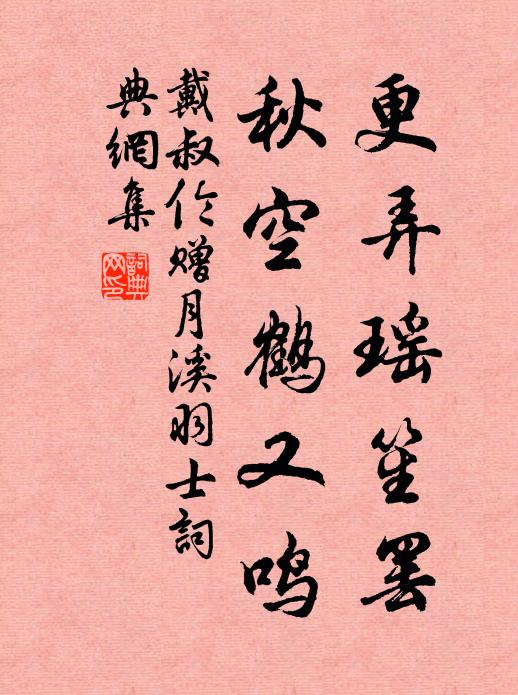 更弄瑶笙罢
秋空鹤又鸣
戴叔伦赠月溪羽士詞
典網集
詞典网印